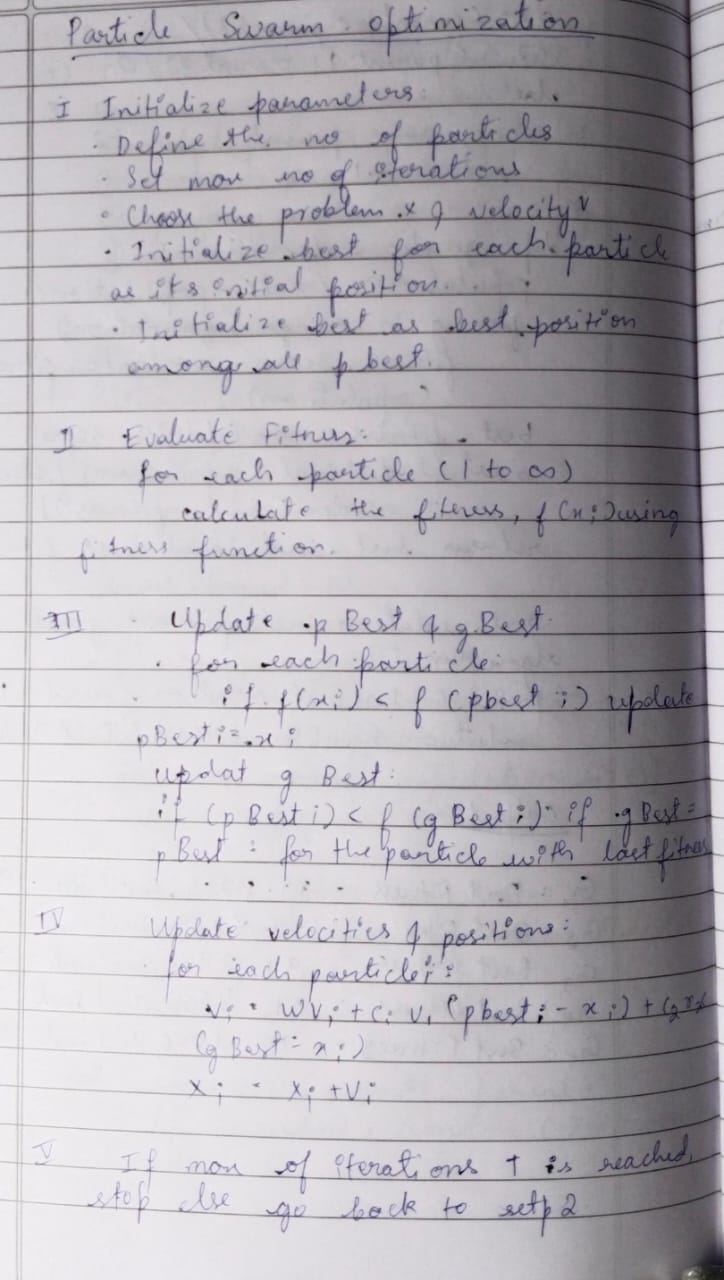 Particle Swarm optimization
I Initialize parameters:
· Define the no of particles
· Set max no of iterations
· Choose the problem x & velocity v
· Initialize best for each particle
as its initial position.
· Initialize best as best position
among all p best.
II Evaluate Fitness:
for each particle (1 to ∞)
calculate the fitness, f(xi) using
fitness function.
III Update p Best & g Best
· for each particle
if f(xi) < f (pbest i) update
pBest i = xi
updat g Best:
if (p Best i) < f (g Best i) if g Best =
p Best i for the particle with last fitness
IV Update velocities & positions:
for each particle i:
vi = wvi + ci v1 (pbest i - xi) + c2 r2
(g Best - xi)
xi = xi + vi
V If max of iterations t is reached,
stop else go back to setp 2